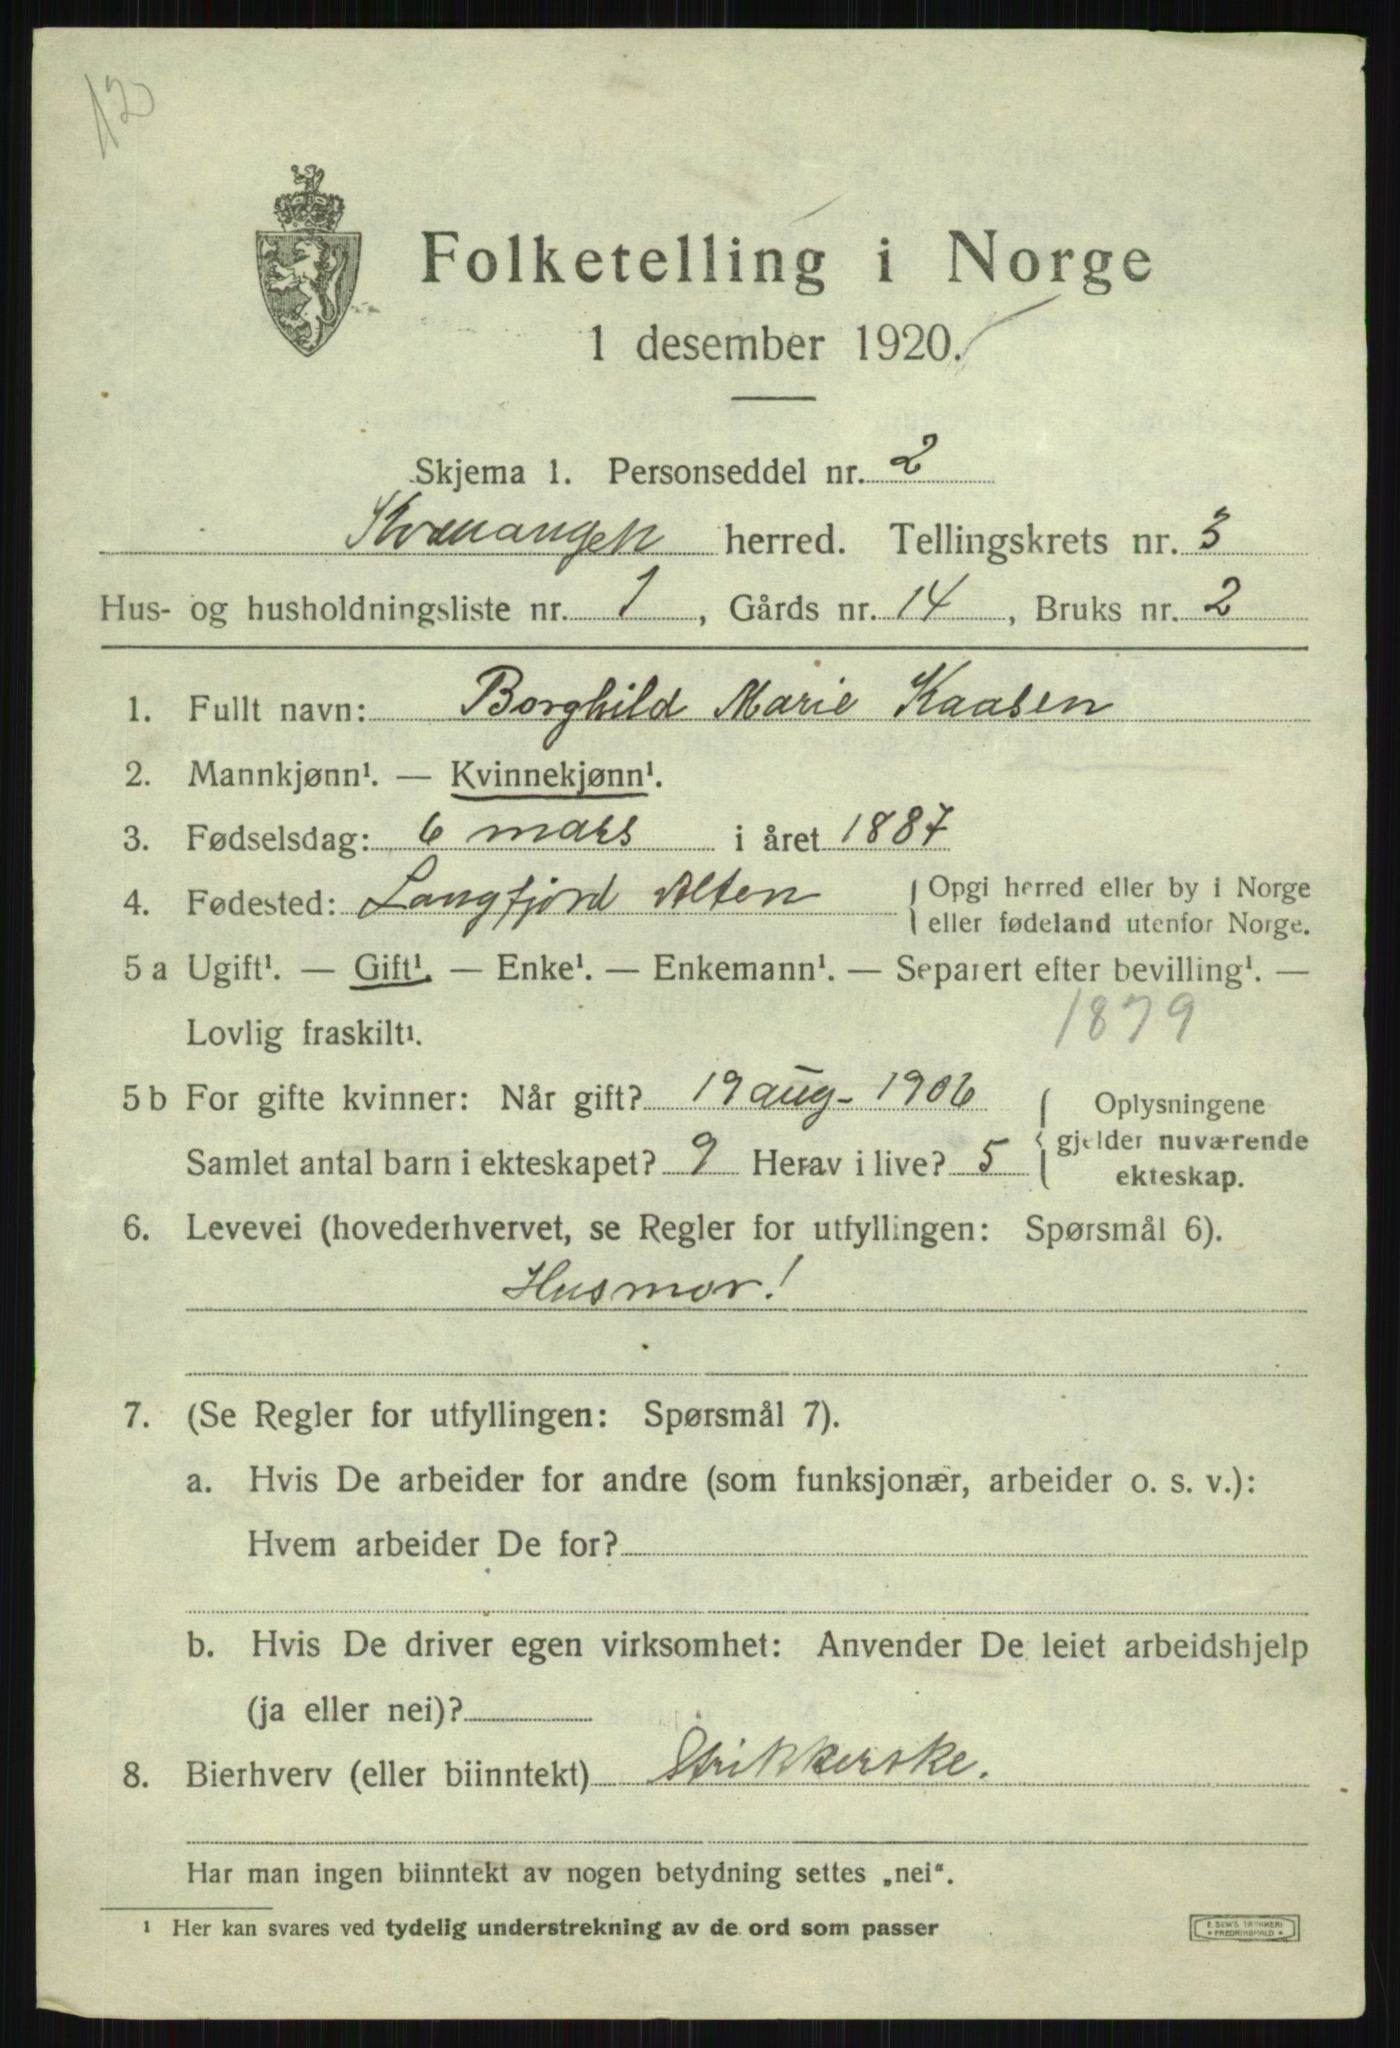 12
Folketelling i Norge
1 desember 1920.
Skjema 1. Personseddel nr. 2
Kvænangen herred. Tellingskrets nr. 3
Hus- og husholdningsliste nr. 1, Gårds nr. 14, Bruks nr. 2
1. Fullt navn: Borghild Marie Kaasen
2. Mannkjønn¹. — Kvinnekjønn¹.
3. Fødselsdag: 6 mars i året 1887
4. Fødested: Langfjord Alten
Opgi herred eller by i Norge
eller fødeland utenfor Norge.
5 a Ugift¹. — Gift¹. — Enke¹. — Enkemann¹. — Separert efter bevilling¹. —
Lovlig fraskilt¹.
1879
5 b For gifte kvinner: Når gift? 19 aug- 1906
Samlet antal barn i ekteskapet? 9 Herav i live? 5
Oplysningene
gjelder nuværende
ekteskap.
6. Levevei (hovederhvervet, se Regler for utfyllingen: Spørsmål 6).
Husmor!
7. (Se Regler for utfyllingen: Spørsmål 7).
a. Hvis De arbeider for andre (som funksjonær, arbeider o. s. v.):
Hvem arbeider De for?
b. Hvis De driver egen virksomhet: Anvender De leiet arbeidshjelp
(ja eller nei)?
8. Bierhverv (eller biinntekt) Strikkerske.
Har man ingen biinntekt av nogen betydning settes „nei“.
¹ Her kan svares ved tydelig understrekning av de ord som passer
E. SEM'S TRYKKERI
FREDRIKSHALD